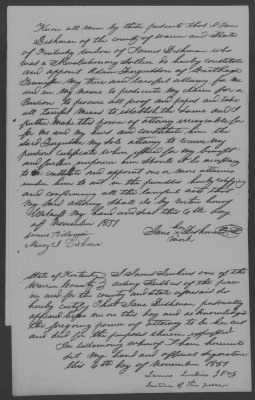 Know all men by these presents that I Jane
Dishman of the county of Warren and State
of Kentucky widow of James Dishman who
was a Revolutionary Soldier do hereby constitute
and appoint Adam Fergusson of Carthage
Tennessee my true and lawful attorney for me
and in my name to prosecute my claim for a
Pension to procure all proofs and papers and take
all lawful means to establish the same And I
further make this power of attorney irrevocable for
for me and my heirs and constitute him the
said Fergusson my sole attorney to receive my
pension certificate when
and further empower him should it be necessary
to constitute and appoint one or more attorneys
under him to act in the premises hereby ratifying
and confirming all the lawful acts that
my said attorney shall do by virtue hereof
Witness my hand and seal this 6th day
of November 1851
her
Jane X Dishman
mark
James
Mary Dishman
State of Kentucky I James Jenkins one of the
Warren County acting Justices of the peace
in and for the county and state aforesaid do
hereby certify that Jane Dishman personally
appeared before me this day and acknowledged
the foregoing power of attorney to be her act
and deed for the purposes therein expressed
In testimony whereof I have hereunto
set my hand and official signature
this 6th day of November 1851
James Jenkins
Justice of the peace